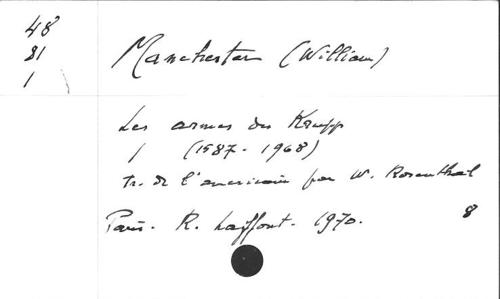 48
81
1
Manchester (William)
Les armes des Krupp
(1587-1968)
tr. de l'américain par W. Rosenthal
Paris. R. Laffont. 1970.
8